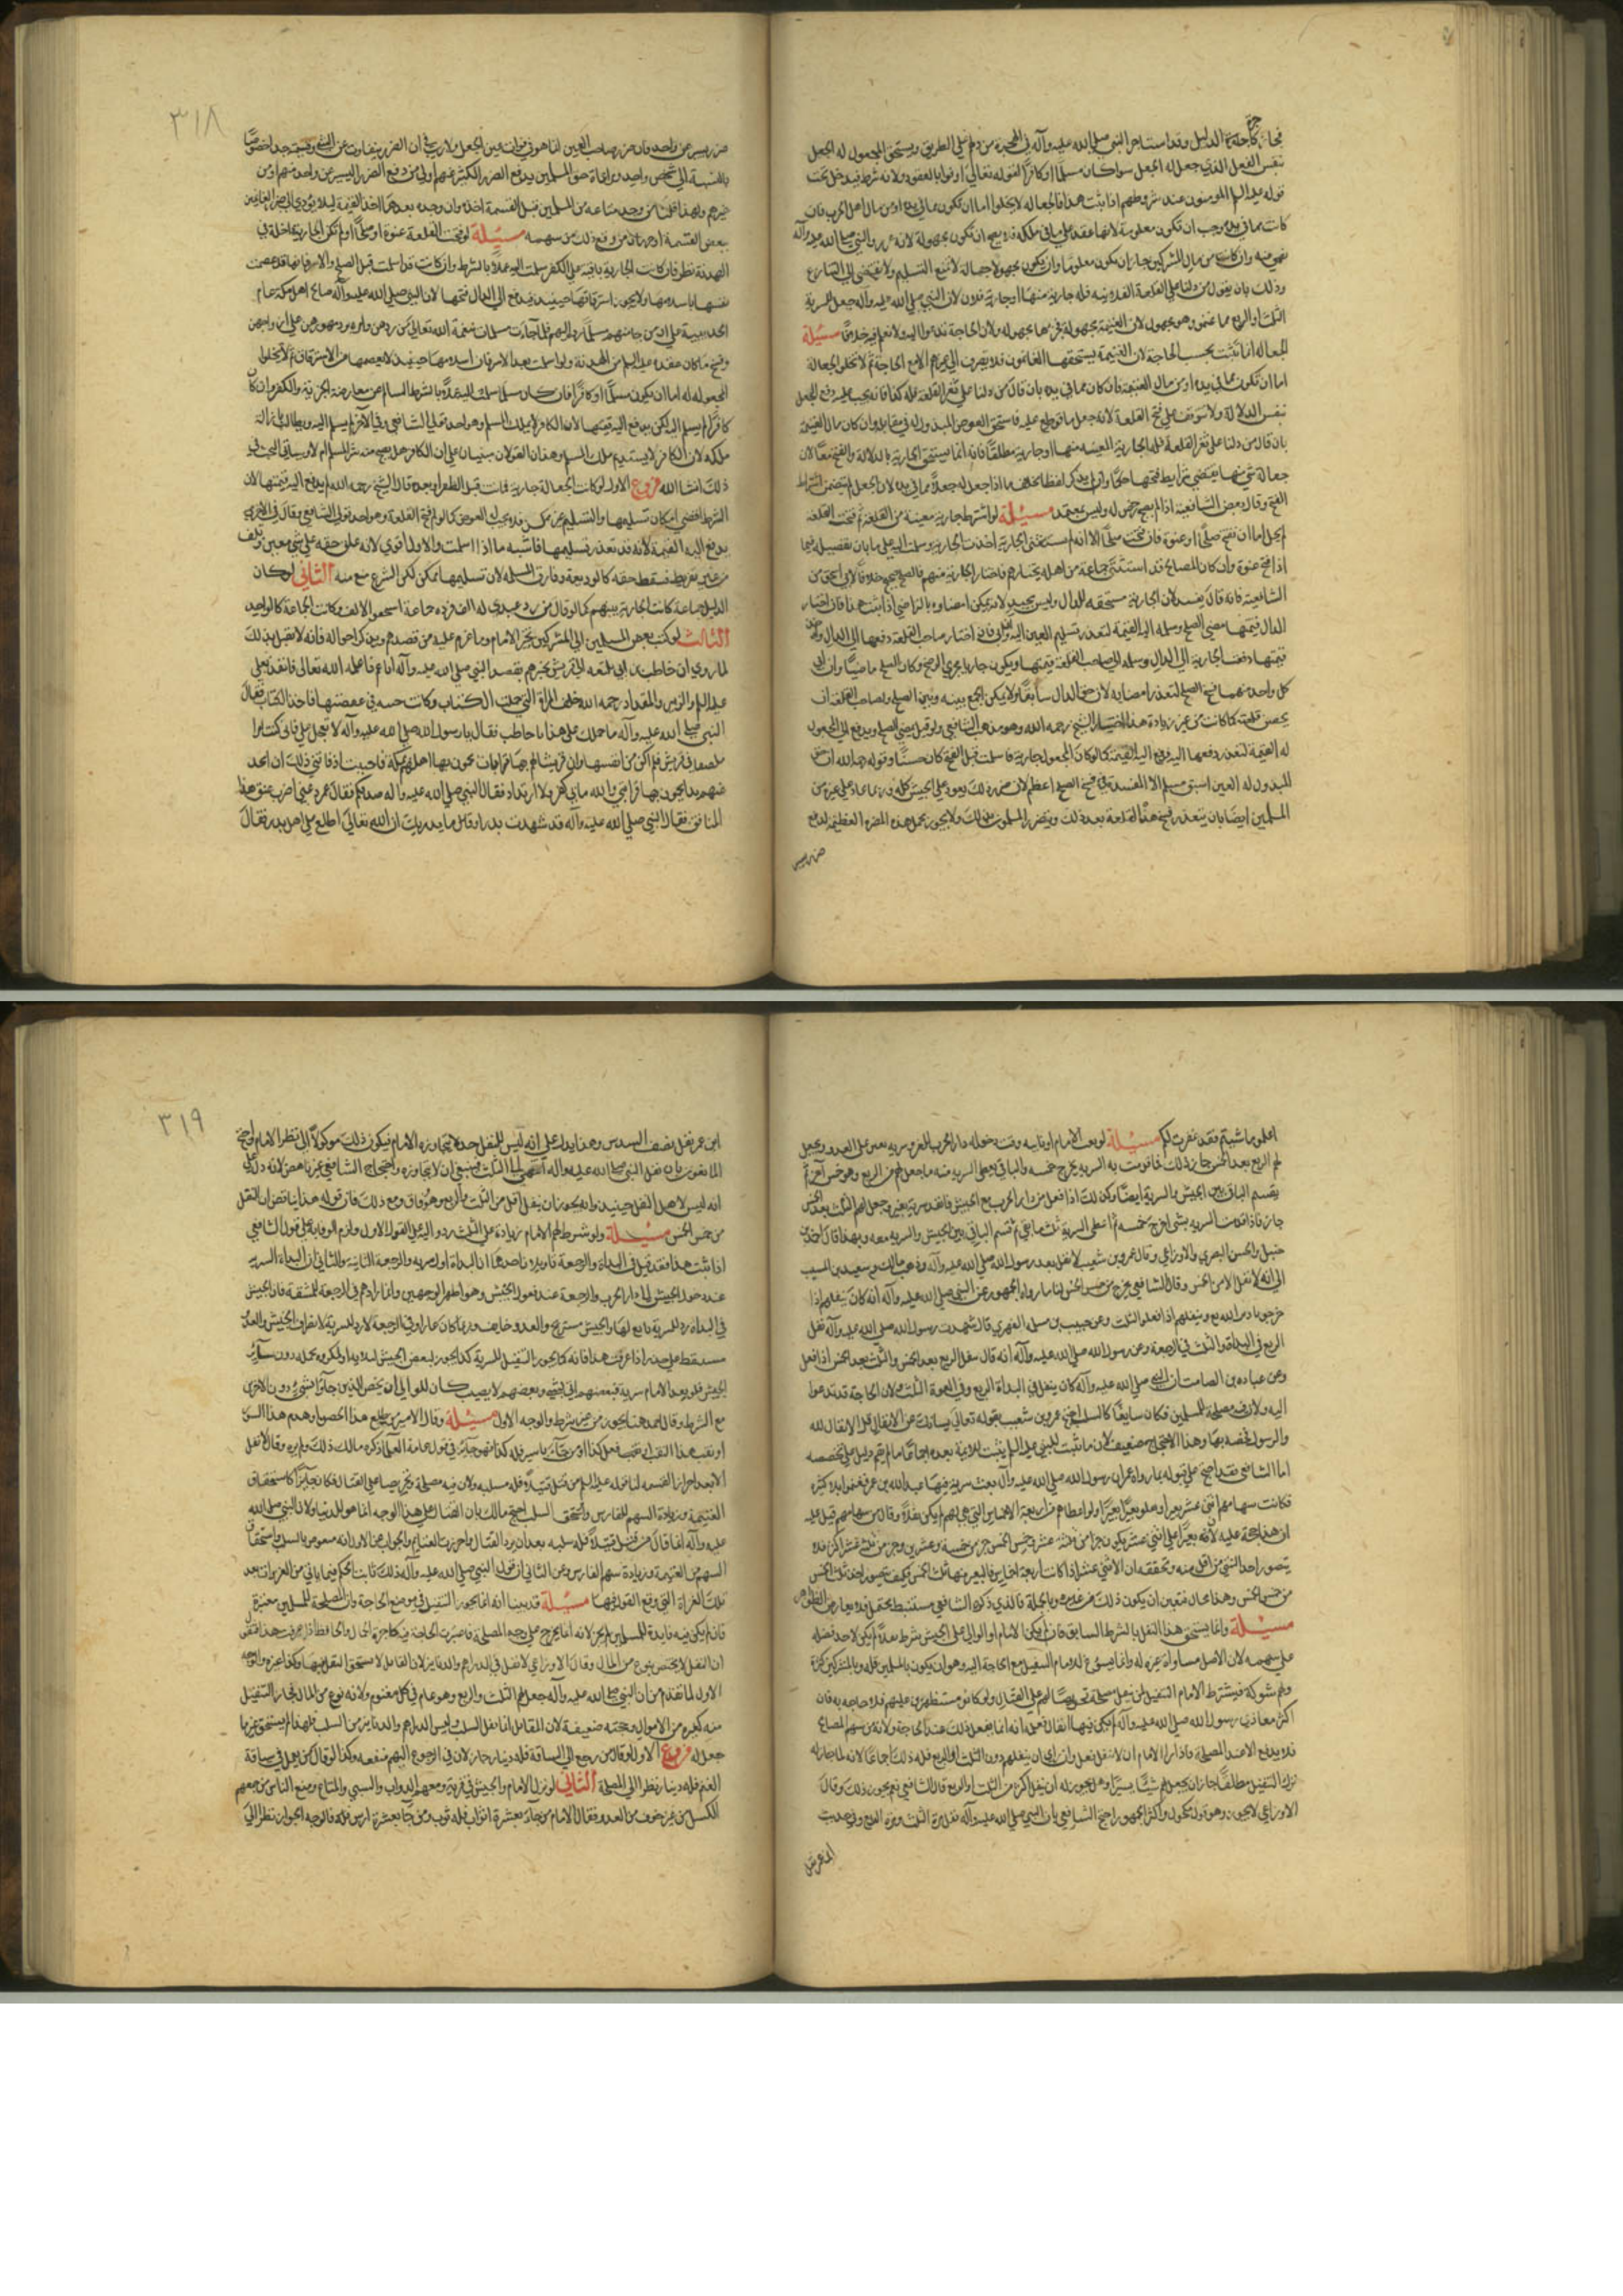 فجاز كاجرة الدليل وقد استاجر النبي صلى الله عليه وآله في الهجرة من دلهم على الطريق ويستحق المجعول له الجعل
بنفس الفعل الذي جعل له الجعل سوا كان مسلما او كافرا لقوله تعالى اوفوا بالعقود ولانه شرط فيدخل تحت
قوله عليه السلم المومنون عند شروطهم اذا ثبت هذا فالجعاله لا يخلوا اما ان تكون مما في يده او من مال اهل الحرب فان
كانت مما في يده وجب ان تكون معلومة لانها عقد على ما في ملكه فلا يصح ان تكون مجهولة لانه غرر والنبي صلى الله عليه وآله
نهى عنه وان كانت من مال المشركين جاز ان يكون معلوما وان يكون مجهولا جهالة لا تمنع التسليم ولا تفضي الى التنازع
وذلك بان يقول من دلنا على القلعة الفلانيه فله جارية منها او جارية فلان لان النبي صلى الله عليه وآله جعل للسرية
الثلث او الربع مما غنموه وهو مجهول لان الغنيمة مجهولة فجزؤها مجهوله ولان الحاجة تدعو اليه ولا نعلم فيه خلافا مسئلة
الجعاله انما تثبت بحسب الحاجة لان الغنيمة يستحقها الغانمون فلا يصرف الى غيرهم الا مع الحاجة ثم لا تخلو الجعالة
اما ان تكون مما في يده او من مال الغنيمة فان كان مما في يده بان قال من دلنا على ثغر القلعة فله كذا فانه يجب عليه دفع الجعل
بنفس الدلالة ولا يتوقف على فتح القلعة لانه جعل ما قوطع عليه فاستحق العوض المبذول له في مقابله وان كان مال الغنيمة
بان قال من دلنا على ثغر القلعة فله الجارية المعينه منها او جارية مطلقا فانه انما يستحق الجارية بالدلالة والفتح معا لان
جعالة شي منها يقتضي اشتراط فتحها حكما وان لم يذكر لفظا بخلاف ما اذا جعل له جعلا مما في يده لان الجعل لم يتضمن اشتراط
الفتح وقال بعض الشافعية اذا لم يفتح رضخ له وليس بمعتمد مسئلة لو اشترط جارية معينة من القلعة ثم فتحت القلعة
لم يخل اما ان تفتح صلحا او عنوة فان فتحت صلحا الا انه لم يستثن الجارية اخذت الجارية وسلمت اليه على ما ياتي تفصيله فيما
اذا فتح عنوة وان كان المصالح قد استثنى جماعة من اهله يختارهم فاختار الجارية منهم فالصلح صحيح خلافا لابي اسحق من
الشافعية فانه قال يفسد لان الجارية مستحقة للدال وليس بجيد لانه يمكن امضاوه بالتراضي اذا ثبت هذا فان اختار
الدال قيمتها مضى الصلح وسلم اليه القيمة لتعذر تسليم العين اليه وان ابى فان اختار صاحب القلعة دفعها الى الدال واخذ
قيمتها دفعت الجارية الى الدال وسلم الى صاحب القلعة قيمتها ويكون جاريا مجرى الرضخ وكان الصلح ماضيا وان ابى
كل واحد منهما فسخ الصلح لتعذر امضايه لان حق الدال سابق ولا يمكن الجمع بينه وبين الصلح ولصاحب القلعة ان
يحصن قلعته كما كانت من غير زيادة هذا اختيار الشيخ رحمه الله وهو مذهب الشافعي ولو قيل يمضي الصلح ويدفع الى المجعول
له القيمة لتعذر دفعها اليه فدفع اليه القيمة كما لو كان المجعول جارية فاسلمت قبل الفتح كان حسنا وقوله رحمه الله ان حق
المبذول له العين اسبق مسلم الا ان المفسدة في فسخ الصلح اعظم لان ضرر ذلك يعود على الجيش كله وربما عاد على غيره من
المسلمين ايضا بان يتعذر فتح هذه القلعة بعد ذلك ويتضرر المسلمون بذلك ولا يجوز تحمل هذه المضرة العظيمة لدفع
ضرر يسير
٣١٨
ضرر يسير عن واحد فان ضرر صاحب العين انما هو في فوات عين الجعل ولا ريب في ان الضرر بتفاوت عين الشي وقيمته جدا خصوصا
بالنسبة الى شخص واحد ومراعاة حق المسلمين بدفع الضرر الكثير عنهم اولى من دفع الضرر اليسير عن واحد منهم او من
غيرهم ولهذا قلنا من وجد متاعه من المسلمين قبل القسمة اخذه وان وجده بعدها اخذ القيمة ليلا يؤدي الى ضرر الغانمين
ببعض القسمة او حرمان من وقع ذلك من سهمه مسئلة لو فتحت القلعة عنوة او صلحا ولم تكن الجارية داخلة في
الهدنة نظر فان كانت الجارية باقية على الكفر سلمت اليه عملا بالشرط وان كانت قد اسلمت قبل الصلح والاسر فانها قد عصمت
نفسها باسلامها ولا يجوز استرقاقها حينيذ فيدفع الى الدال قيمتها لان النبي صلى الله عليه وآله صالح اهل مكة عام
الحديبية على ان من جا منهم مسلما رده اليهم فلما جآءت مسلمات منعه الله تعالى من ردهن وامره برد مهورهن على ازواجهن
وفسخ ما كان عقده عليه السلم من الهدنة ولو اسلمت بعد الاسر فان اسلامها حينيذ لا يعصمها من الاسترقاق ثم لا يخلوا
المجعول له اما ان يكون مسلما او كافرا فان كان مسلما سلمت اليه عملا بالشرط السالم عن معارضة الحرية والكفر وان كان
كافرا لم يسلم اليه لكن يدفع اليه قيمتها لان الكافر لا يملك المسلم وهو احد قولي الشافعي وفي الآخر يسلم اليه ويطالب بازالة
ملكه لان الكافر لا يستديم ملك المسلم وهذان القولان مبنيان على ان الكافر هل يصح منه شراء المسلم ام لا وسياتي البحث في
ذلك انشا الله فروع الاول لو كانت الجعالة جارية فماتت قبل الظفر او بعده قال الشيخ رحمه الله لم يدفع اليه قيمتها لان
الشرط اقتضى امكان تسليمها والتسليم غير ممكن فلا يجب له العوض كما لو لم تفتح القلعة وهو احد قولي الشافعي وقال في الاخرى
يدفع اليه القيمة لانه قد تعذر تسليمها فاشبه ما اذا اسلمت والاول اقوى لانه علق حقه على شي معين وتلف
من غير تفريط فسقط حقه كالوديعة وفارق المسلمة لان تسليمها ممكن لكن الشرع منع منه الثاني لو كان
الدليل جماعة كانت الجارية بينهم كما لو قال من رد عبدي له الف فرده جماعة استحقوا الالف وكانت الجماعة كالواحد
الثالث لو كتب بعض المسلمين الى المشركين بخبر الامام وما عزم عليه من قصدهم ويذكر احواله فانه لا يقتل بذلك
لما روي ان حاطب بن ابي بلتعه الى قريش يخبرهم بقصد النبي صلى الله عليه وآله اياهم فاعلمه الله تعالى فانفذ بعلي
عليه السلم والزبير والمقداد رحمه الله خلف المرأة التي حملت الكتاب وكانت حسه في عقصتها فاخذا الكتاب فقال
النبي صلى الله عليه وآله ما حملك على هذا يا حاطب فقال يا رسول الله صلى الله عليه وآله لا تعجل علي فاني كنت امرا
ملصقا في قريش فلم اكن من انفسها وان قريشا لهم بها قرابات يحمون بها اهلهم بمكة فاحببت اذ فاتني ذلك ان اتخذ
عندهم يدا يحمون بها قرابتي والله ما بي كفر ولا ارتداد فقال النبي صلى الله عليه وآله صدقكم فقال عمر دعني اضرب عنق هذا
المنافق فقال النبي صلى الله عليه وآله قد شهدت بدرا وقال ما يدريك ان الله تعالى اطلع على اهل بدر فقال
اعملوا ما شيتم فقد غفرت لكم مسئلة لو بعث الامام او نايبه وقت دخوله دار الحرب للغزو سرية تغير على العدو ويجعل
لهم الربع بعد الخمس جاز ذلك فما قدمت به السرية يخرج خمسه والباقي يعطى السرية منه ما جعل لهم من الربع وهو خمس آخر ثم
يقسم الباقي بين الجيش والسرية ايضا وكذلك اذا قفل من دار الحرب مع الجيش فانفذ سرية تغير وجعل لهم الثلث بعد الخمس
جاز فاذا قدمت السرية بشي اخرج خمسه ثم اعطى السرية ثلث ما بقي ثم قسم الباقي بين الجيش والسرية معه وبهذا قال احمد بن
حنبل والحسن البصري والاوزاعي وقال عمرو بن شعيب لا نفل بعد رسول الله صلى الله عليه وآله وذهب مالك وسعيد بن المسيب
الى انه لا نفل الا من الخمس وقال الشافعي يخرج من خمس الخمس لنا ما رواه الجمهور عن النبي صلى الله عليه وآله انه كان ينفلهم اذا
خرجوا بادين الربع وينفلهم اذا قفلوا الثلث وعن حبيب بن مسلمه الفهري قال شهدت رسول الله صلى الله عليه وآله نفل
الربع في البداة والثلث في الرجعة وعن رسول الله صلى الله عليه وآله انه كان ينفل الربع بعد الخمس والثلث بعد الخمس اذا قفل
وعن عباده بن الصامت ان النبي صلى الله عليه وآله كان ينفل في البداة الربع وفي العودة الثلث ولان الحاجة قد تدعوا
اليه ولان فيه مصلحة للمسلمين فكان سايغا كالسلب احتج عمرو بن شعيب بقوله تعالى يسألونك عن الانفال قل الانفال لله
والرسول فخصه بها وهذا الاحتجاج ضعيف لان ما ثبت للنبي عليه السلم يثبت للايمة بعده اجماعا ما لم يقم دليل على تخصيصه
اما الشافعي فقد احتج على قوله بما رواه ابن عمر ان رسول الله صلى الله عليه وآله بعث سرية فيها عبد الله بن عمر فغنموا ابلا كثيرة
فكانت سهامهم اثني عشر بعيرا ونفلوا بعيرا بعيرا ولو اعطاهم من اربعة الاخماس التي هي لهم لم يكن نفلا وقال من سهامهم قيل عليه
ان هذا حجة عليه لانه بعيرا على اثني عشر يكون جزا من ثلثة عشر وخمس الخمس جزء من خمسة وعشرين وجزء من ثلثة عشر اكثر فلا
يتصور اخذ الشي من اقل منه وتحققه ان الاثني عشر اذا كانت اربعة اخماس فالبعير منها ثلث الخمس فكيف يتصور اخذ ثلث الخمس
من خمس الخمس وهذا محال فتعين ان يكون ذلك من غيره وبالجملة فالذي ذكره الشافعي مستنبط محتمل فلا يعارض الظواهر
مسئلة وانما يستحق هذا النفل بالشرط السابق فان لم يكن الامام او الوالي على الجيش شرط نفلا لم يكن لاحد فضله
على سهمه لان الاصل مساواة غيره له وانما يسوغ للامام التنفيل مع الحاجة اليه وهو ان يكون بالمسلمين قلة وبالمشركين كثرة
ولهم شوكة فيشترط الامام التنفيل لمن يفعل مصلحة تحريضا لهم على القتال ولو كانوا مستظهرين عليهم فلا حاجه به فان
اكثر مغازي رسول الله صلى الله عليه وآله لم يكن فيها انفال فعلم انه انما يفعل ذلك عند الحاجة ولانه من سهم المصالح
فلا يدفع الا عند المصلحة واذا رأى الامام ان لا ينفل فعل وان رأى ان ينفلهم دون الثلث او الربع فله ذلك اجماعا لانه لما جاز له
ترك التنفيل مطلقا جاز ان يجعل لهم شيئا يسيرا وهل يجوز له ان ينفل اكثر من الثلث او الربع قال الشافعي نعم يجوز ذلك وقال
الاوزاعي لا يجوز وهو قول مكحول واكثر الجمهور احتج الشافعي بان النبي صلى الله عليه وآله نفل مرة الثلث ومرة الربع وفي حديث
ابن عمر
٣١٩
ابن عمر نفل نصف السدس وهذا يدل على انه ليس للنفل حد لا يتجاوزه الامام فيكون ذلك موكولا الى نظر الامام واحتج
المانعون بان نفل النبي صلى الله عليه وآله انتهى الى الثلث فينبغي ان لا يتجاوزه واحتجاج الشافعي غير ناهض لانه دل على
انه ليس لاقل النفل حينيذ وانه يجوز ان ينفل اقل من الثلث والربع وهو وفاق ومع ذلك فان قوله هذا يناقض ان النفل
من خمس الخمس مسئلة ولو شرط لهم الامام زيادة على الثلث ردوا اليه على القول الاول ولزم الوفا به على قول الشافعي
اذا ثبت هذا فقد قيل في البداة والرجعة تاويلان احدهما ان البداة اول سريه والرجعة الثانية والثاني ان البداة السريه
عند دخول الجيش الى دار الحرب والرجعة عند قفول الجيش وهو اظهر الوجهين وانما زادهم في الرجعة للمشقة فان الجيش
في البداة ردء للسرية تابع لها والجيش مستريح والعدو خايف وربما كان غارا وفي الرجعة لا ردء للسرية لانصراف الجيش والعدو
مستيقظ على حذر اذا عرفت هذا فانه كما يجوز التنفيل للسرية كذا يجوز لبعض الجيش لبلايه او لمكروه تحمله دون ساير
الجيش فلو بعث الامام سرية فبعضهم اتى بشي وبعضهم لا يصيب كان للوالي ان يخص الذين جآؤا بشي دون الاخرى
مع الشرط وقال احمد هنا يجوز من غير شرط والوجه الاول مسئلة وقال الامير من طلع هذا الحصن او هدم هذا السور
او نقب هذا النقب او فعل كذا او من جآء باسير فله كذا فهو جائز في قول عامة العلماء كره مالك ذلك ولم يره وقال لا نفل
الا بعد احراز الغنيمه لنا قوله عليه السلم من قتل قتيلا فله سلبه ولان فيه مصلحة وتحريضا على القتال فكان جائزا كاستحقاق
الغنيمة وزيادة السهم للفارس واستحق السلب احتج مالك بان القتال على هذا الوجه انما هو للدنيا ولان النبي صلى الله
عليه وآله انما قال من قتل قتيلا فله سلبه بعد ان برد القتال واحرزت الغنايم والجواب عن الاول انه معوض بالسلب واستحقاق
السهم من الغنيمة وزيادة سهم الفارس وعن الثاني ان قول النبي صلى الله عليه وآله ذلك ثابت الحكم فيما ياتي من الغزوات بعد
تلك الغزاة التي وقع القول فيها مسئلة قد بينا انه انما يجوز التنفيل في موضع الحاجة وان المصلحة للمسلمين معتبرة
فان لم يكن فيه فايدة للمسلمين لم يجز لانه انما يخرج على وجه المصلحة فاعتبرت الحاجة فيه كاجرة الحمال والحافظ اذا عرفت هذا فنقول
ان النفل لا يختص بنوع من المال وقال الاوزاعي لا نفل في الدراهم والدنانير لان القاتل لا يستحق النفل فيها وكذا غيره والوجه
الاول لما تقدم من ان النبي صلى الله عليه وآله جعل لهم الثلث والربع وهو عام في كل مغنوم ولانه نوع من المال فجاز التنفيل
منه كغيره من الاموال وحجته ضعيفة لان المقاتل انما نفل السلب وليس الدراهم والدنانير من السلب فلهذا لم يستحق غير ما
جعل له فروع الاول لو قال من رجع الى الساقة فله دينار جاز لان في الرجوع اليهم منفعة وكذا لو قال من يعمل في سياقة
الغنم فله دينار نظرا الى المصلحة الثاني لو نزل الامام والجيش في قرية ومعهم الدواب والسبي والمتاع ومنع الناس من جمعهم
الكسل من غير خوف من العدو فقال الامام من جآء بعشرة اثواب فله ثوب ومن جآء بعشرة ارؤس فله فالوجه الجواز نظرا الى